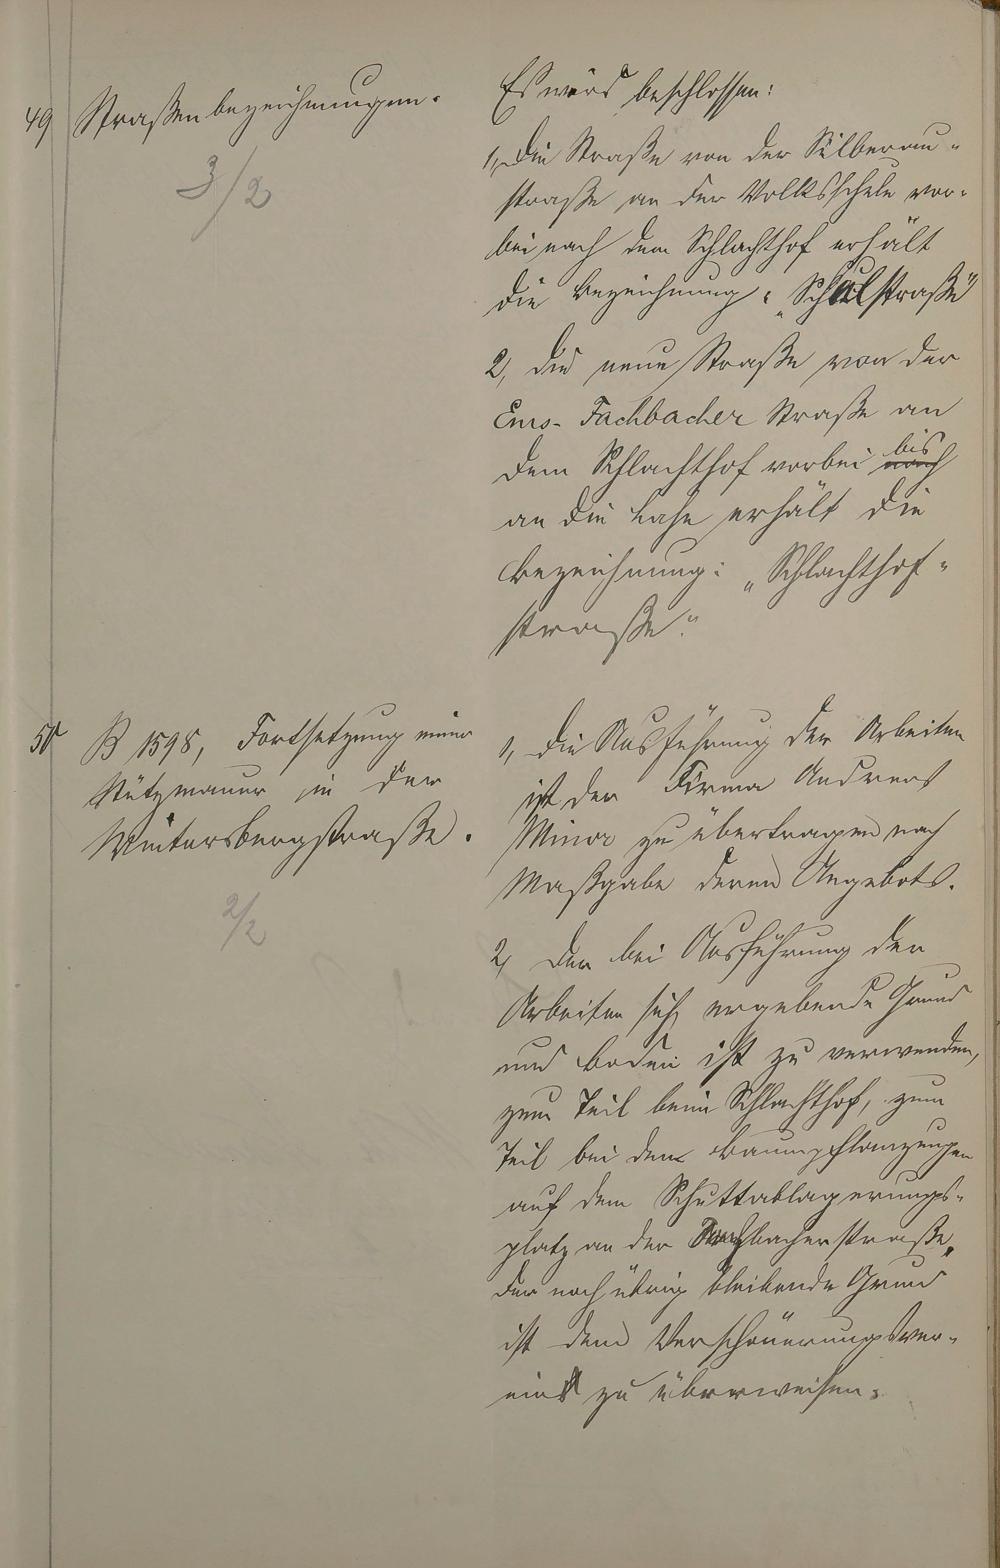 49 Straßenbezeichnungen.
3/2
Es wird beschlossen:
1, Die Straße von der Silberau-
straße an der Volksschule vor-
bei nach dem Schlachthof erhält
die Bezeichnung: „Schulstraße"
2, die neue Straße von der
Ems-Fachbacher Straße an
dem Schlachthof vorbei nach bis
an die Lahn erhält die
Bezeichnung: „Schlachthof-
straße".
50 B 1598, Fortsetzung einer
Stützmauer in der
Wintersbergstraße.
2/2
1, Die Ausführung der Arbeiten
ist der Firma Andreas
Minor zu übertragen nach
Maßgabe deren Angebots.
2, Der bei Ausführung der
Arbeiten sich ergebende Grund
und Boden ist zu verwenden,
zum Teil beim Schlachthof, zum
Teil bei den Baumpflanzungen
auf dem Schuttablagerungs-
platz an der Fachbacherstraße,
der noch übrig bleibende Grund
ist dem Verschönerungsver-
ein zu überweisen.